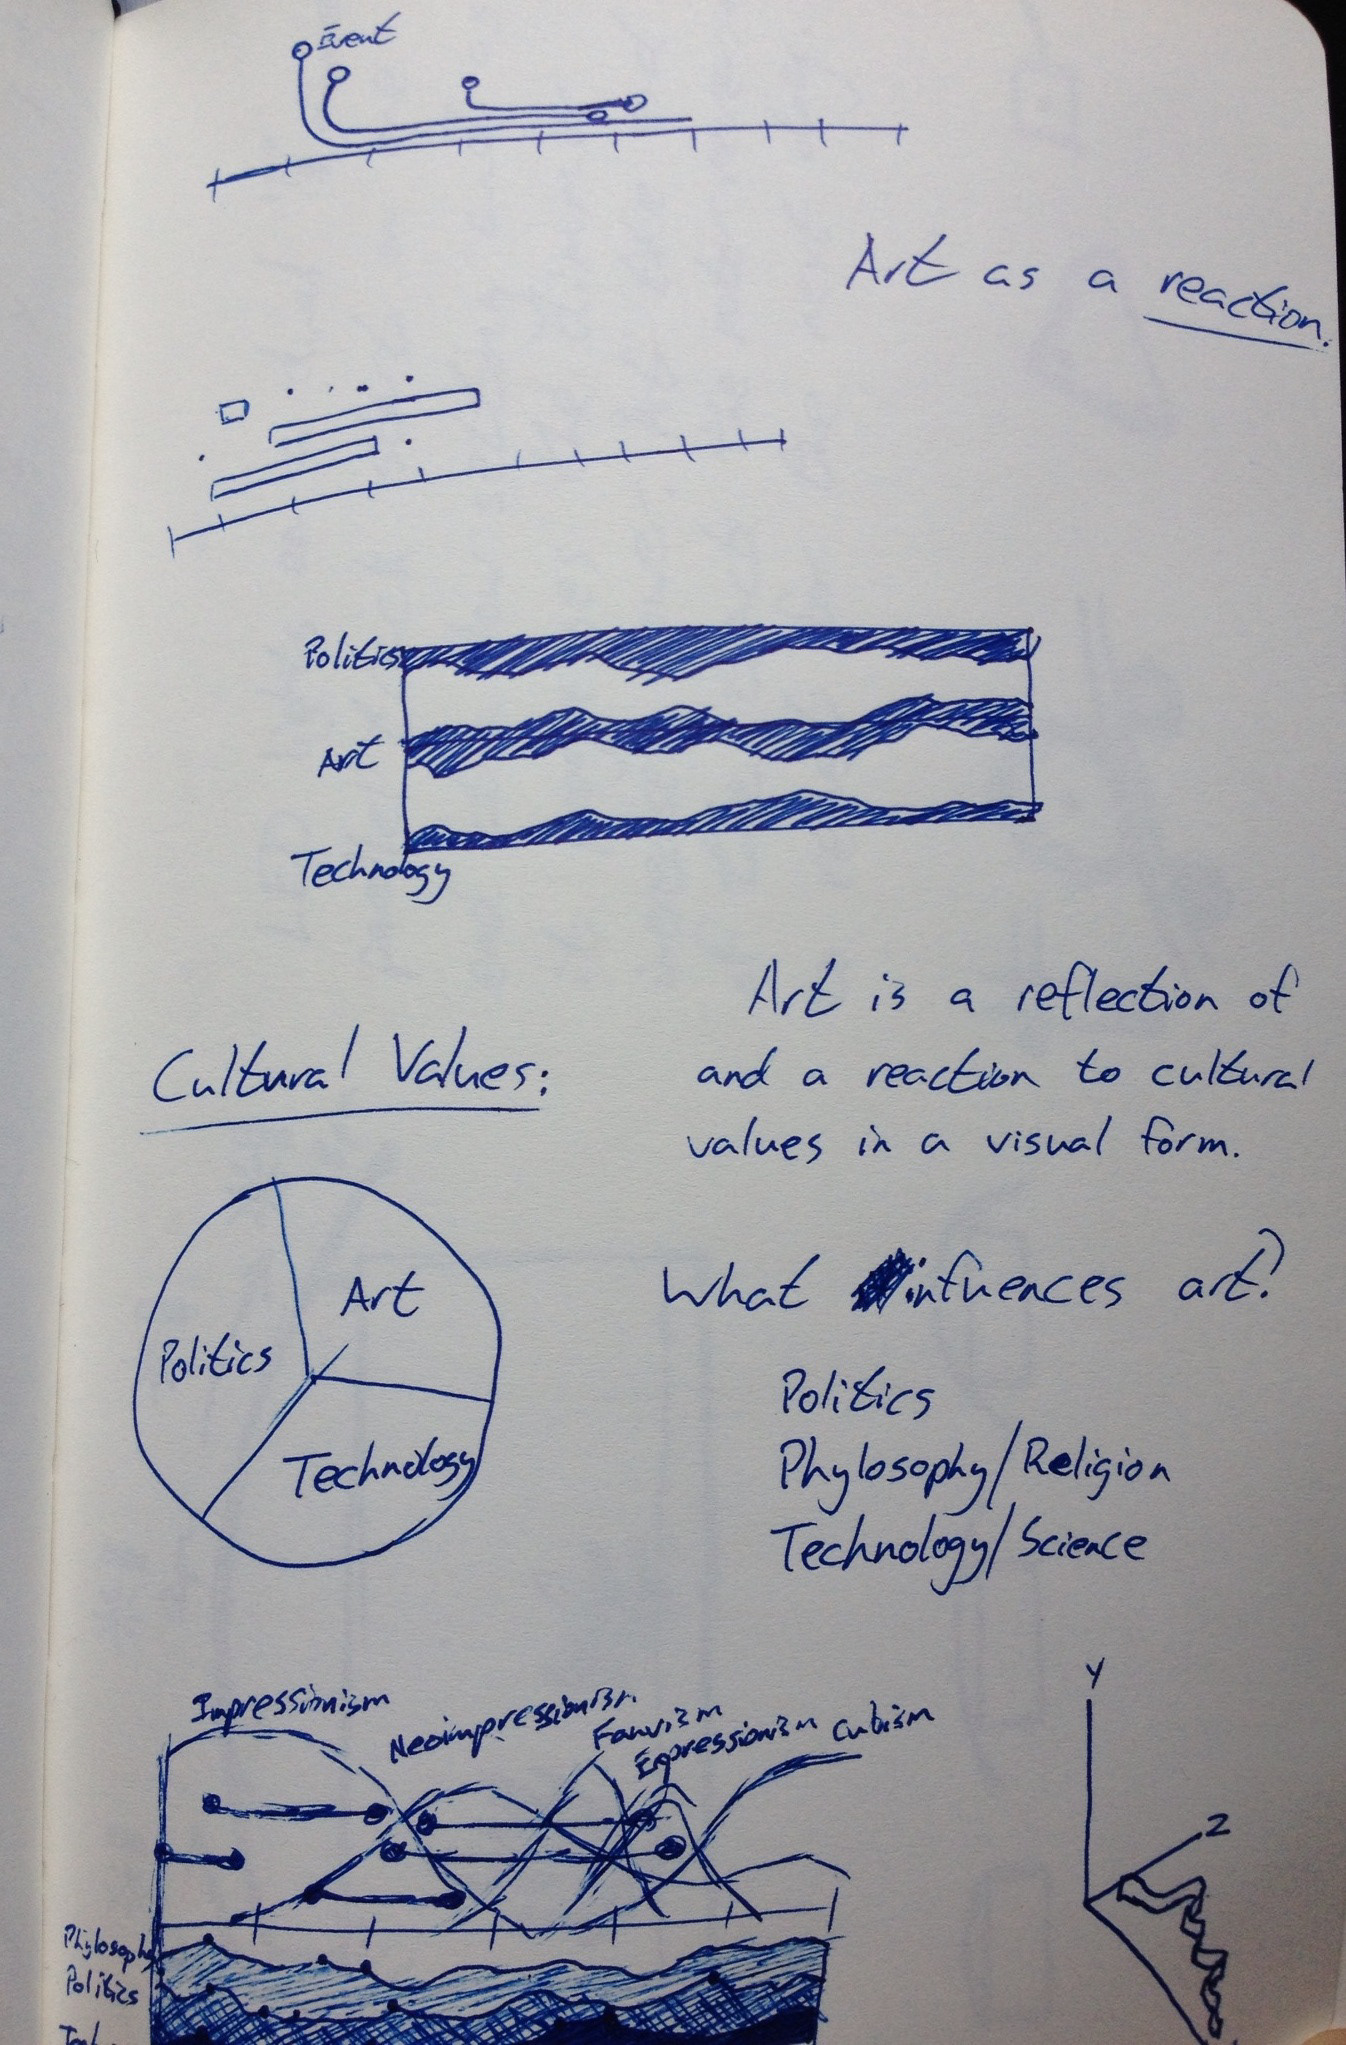 Event
Art as a reaction.
Politics
Art
Technology
Art is a reflection of
and a reaction to cultural
values in a visual form.
Cultural Values:
Art
Politics
Technology
What influences art?
Politics
Phylosophy/Religion
Technology/Science
Impressionism
Neoimpressionism
Fauvism
Expressionism
Cubism
Y
Z
Phylosophy
Politics